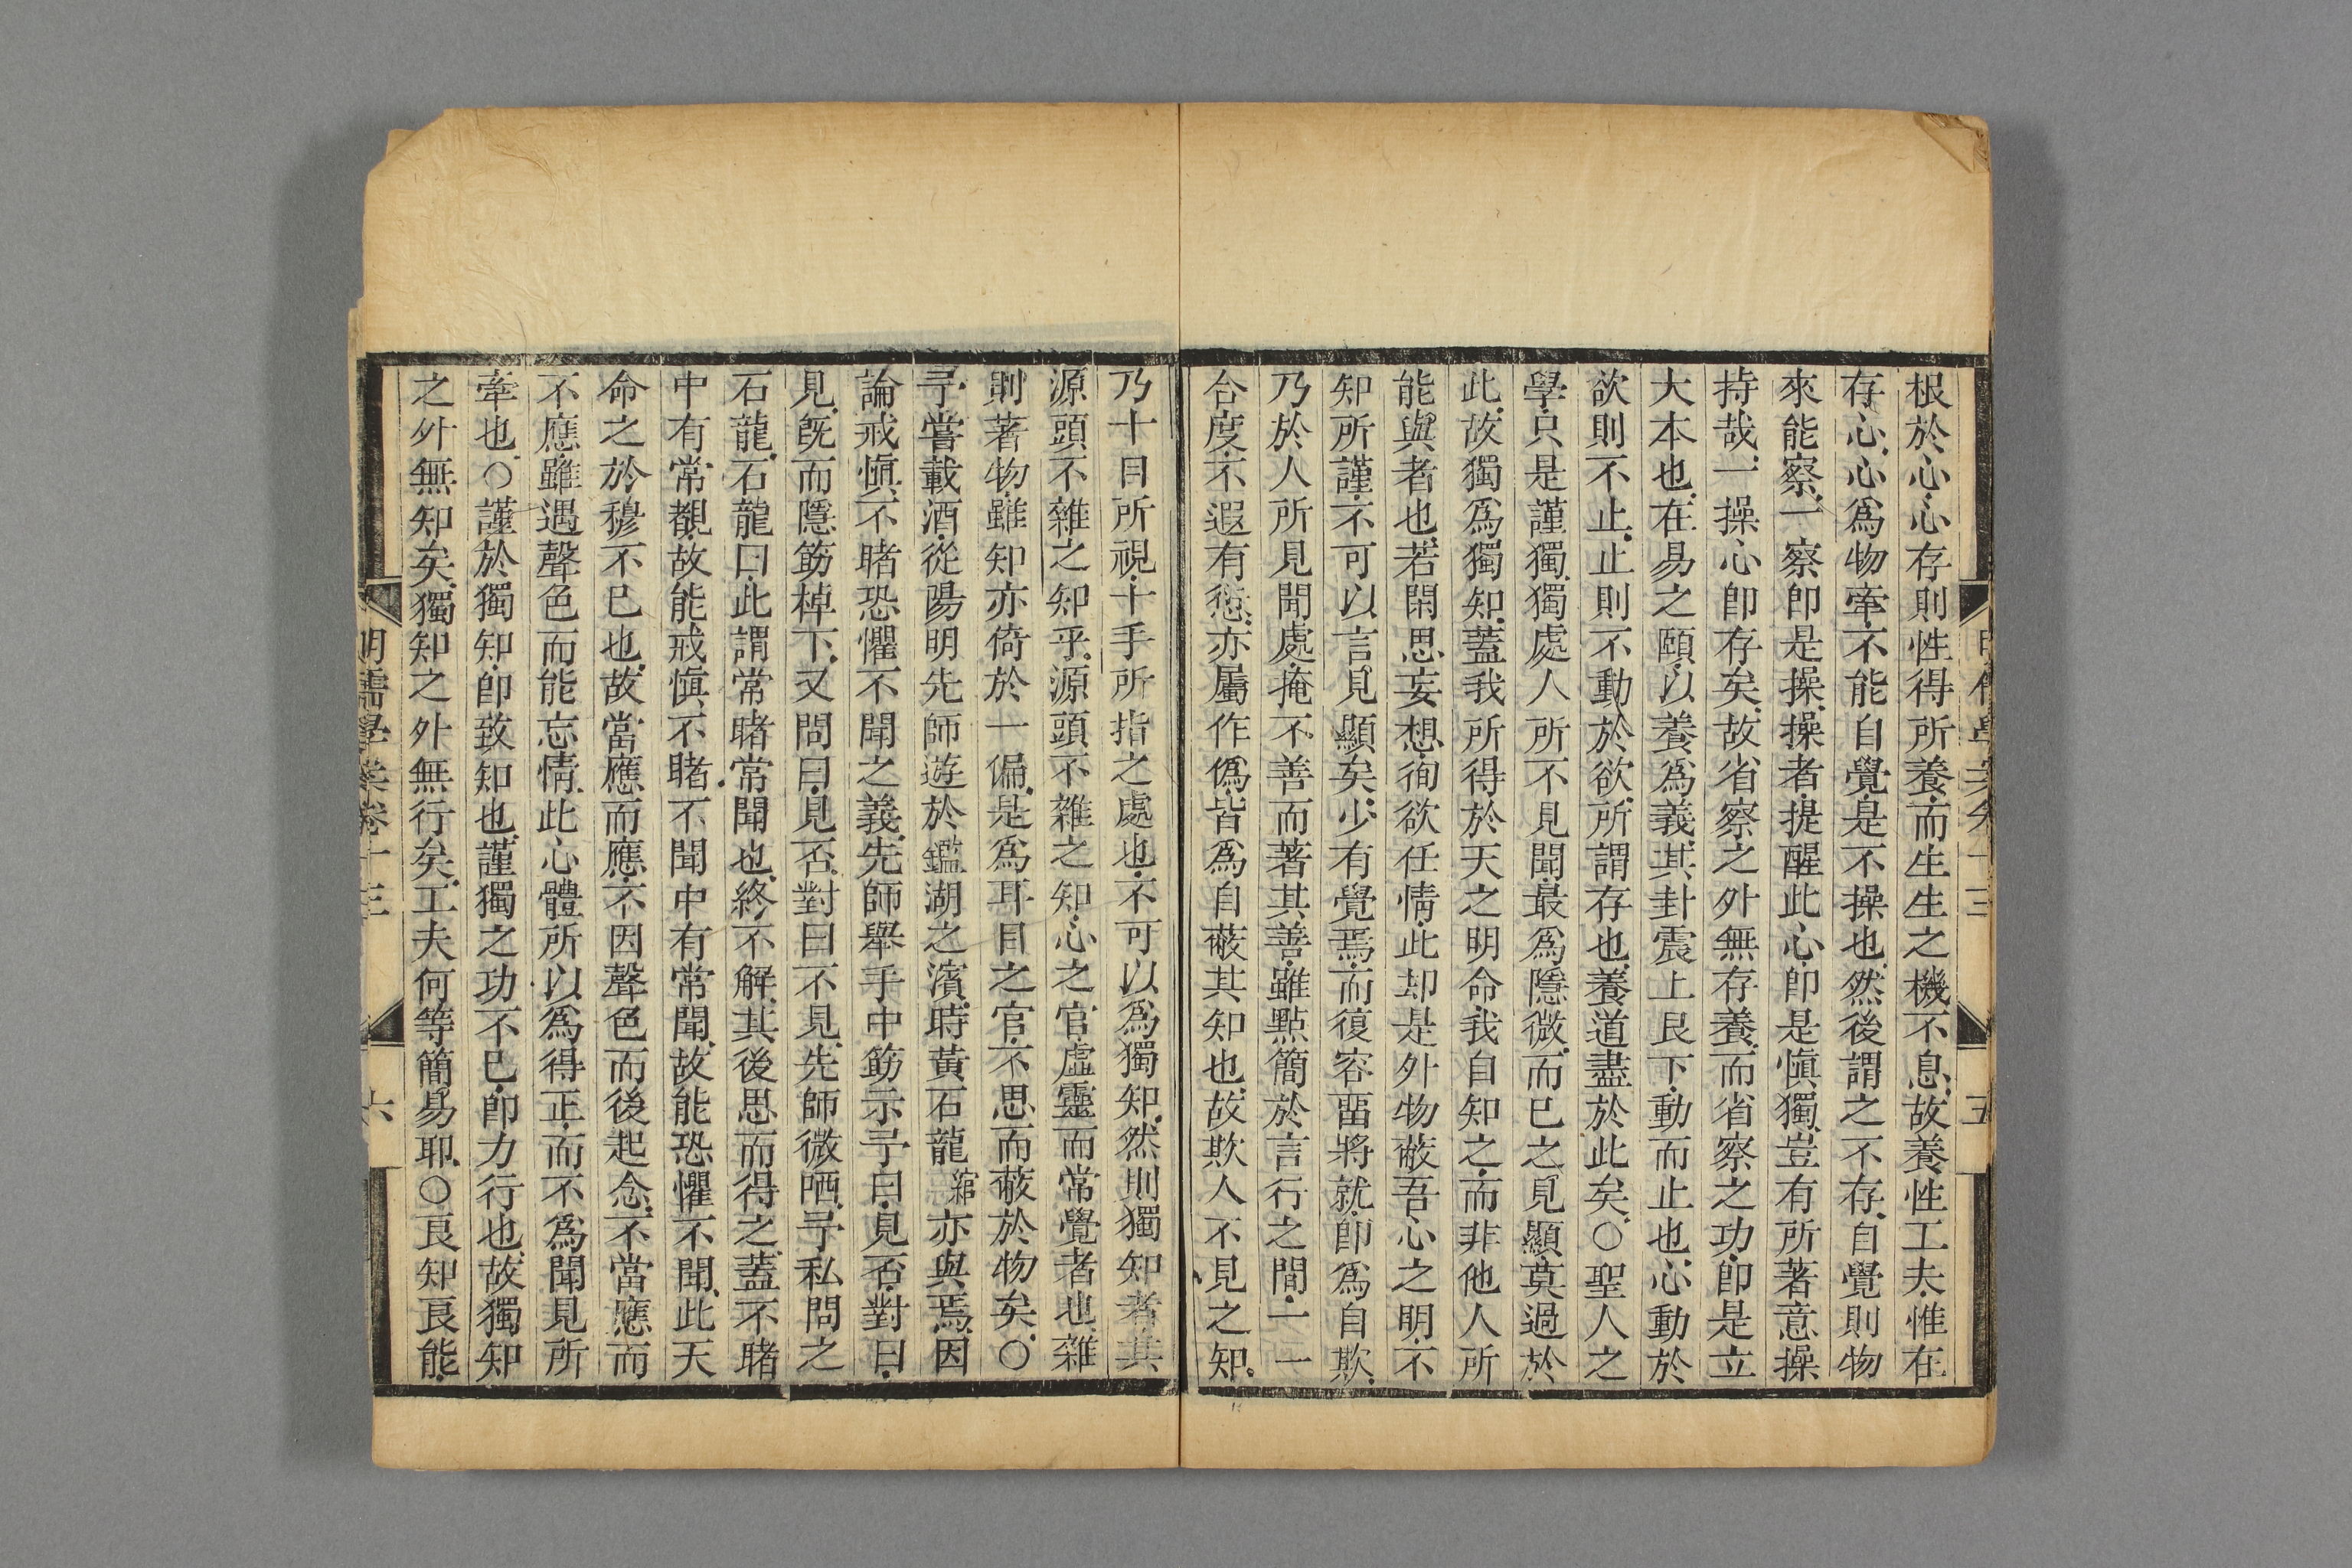 根於心、心存則性得所養、而生生之機不息、故養性工夫、惟在
存心、心爲物牽、不能自覺、是不操也、然後謂之不存、自覺則物
來能察、一察卽是操、操者、提醒此心、卽是愼獨、豈有所著意操
持哉、一操心卽存矣、故省察之外無存養、而省察之功、卽是立
大本也、在易之頤、以養爲義、其卦震上艮下、動而止也、心動於
欲則不止、止則不動於欲、所謂存也、養道盡於此矣、○聖人之
學、只是謹獨、獨處人所不見聞、最爲隱微、而已之見顯、莫過於
此、故獨爲獨知、蓋我所得於天之明命、我自知之、而非他人所
能與者也、若閑思妄想、徇欲任情、此却是外物蔽吾心之明、不
知所謹、不可以言見顯矣、少有覺焉、而復容畱將就、卽爲自欺、
乃於人所見聞處、掩不善而著其善、雖點簡於言行之間、一一
合度、不遐有愆、亦屬作僞、皆爲自蔽其知也、故欺人不見之知、
乃十目所視、十手所指之處也、不可以爲獨知、然則獨知者、其
源頭不雜之知乎、源頭不雜之知、心之官、虛靈而常覺者也、雜
則著物、雖知亦倚於一偏、是爲耳目之官、不思而蔽於物矣、○
予嘗載酒、從陽明先師遊於鑑湖之濱、時黃石龍綰亦與焉、因
論戒愼不睹恐懼不聞之義、先師舉手中筯示予曰、見否、對曰、
見、旣而隱筯棹下、又問曰、見否、對曰不見、先師微哂、予私問之
石龍、石龍曰、此謂常睹常聞也、終不解、其後思而得之、蓋不睹
中有常覩、故能戒愼不睹、不聞中有常聞、故能恐懼不聞、此天
命之於穆不已也、故當應而應、不因聲色而後起念、不當應而
不應、雖遇聲色而能忘情、此心體所以爲得正、而不爲聞見所
牽也、○謹於獨知、卽致知也、謹獨之功不已、卽力行也、故獨知
之外無知矣、獨知之外無行矣、工夫何等簡易耶、○良知良能、
明儒學案卷十三
六